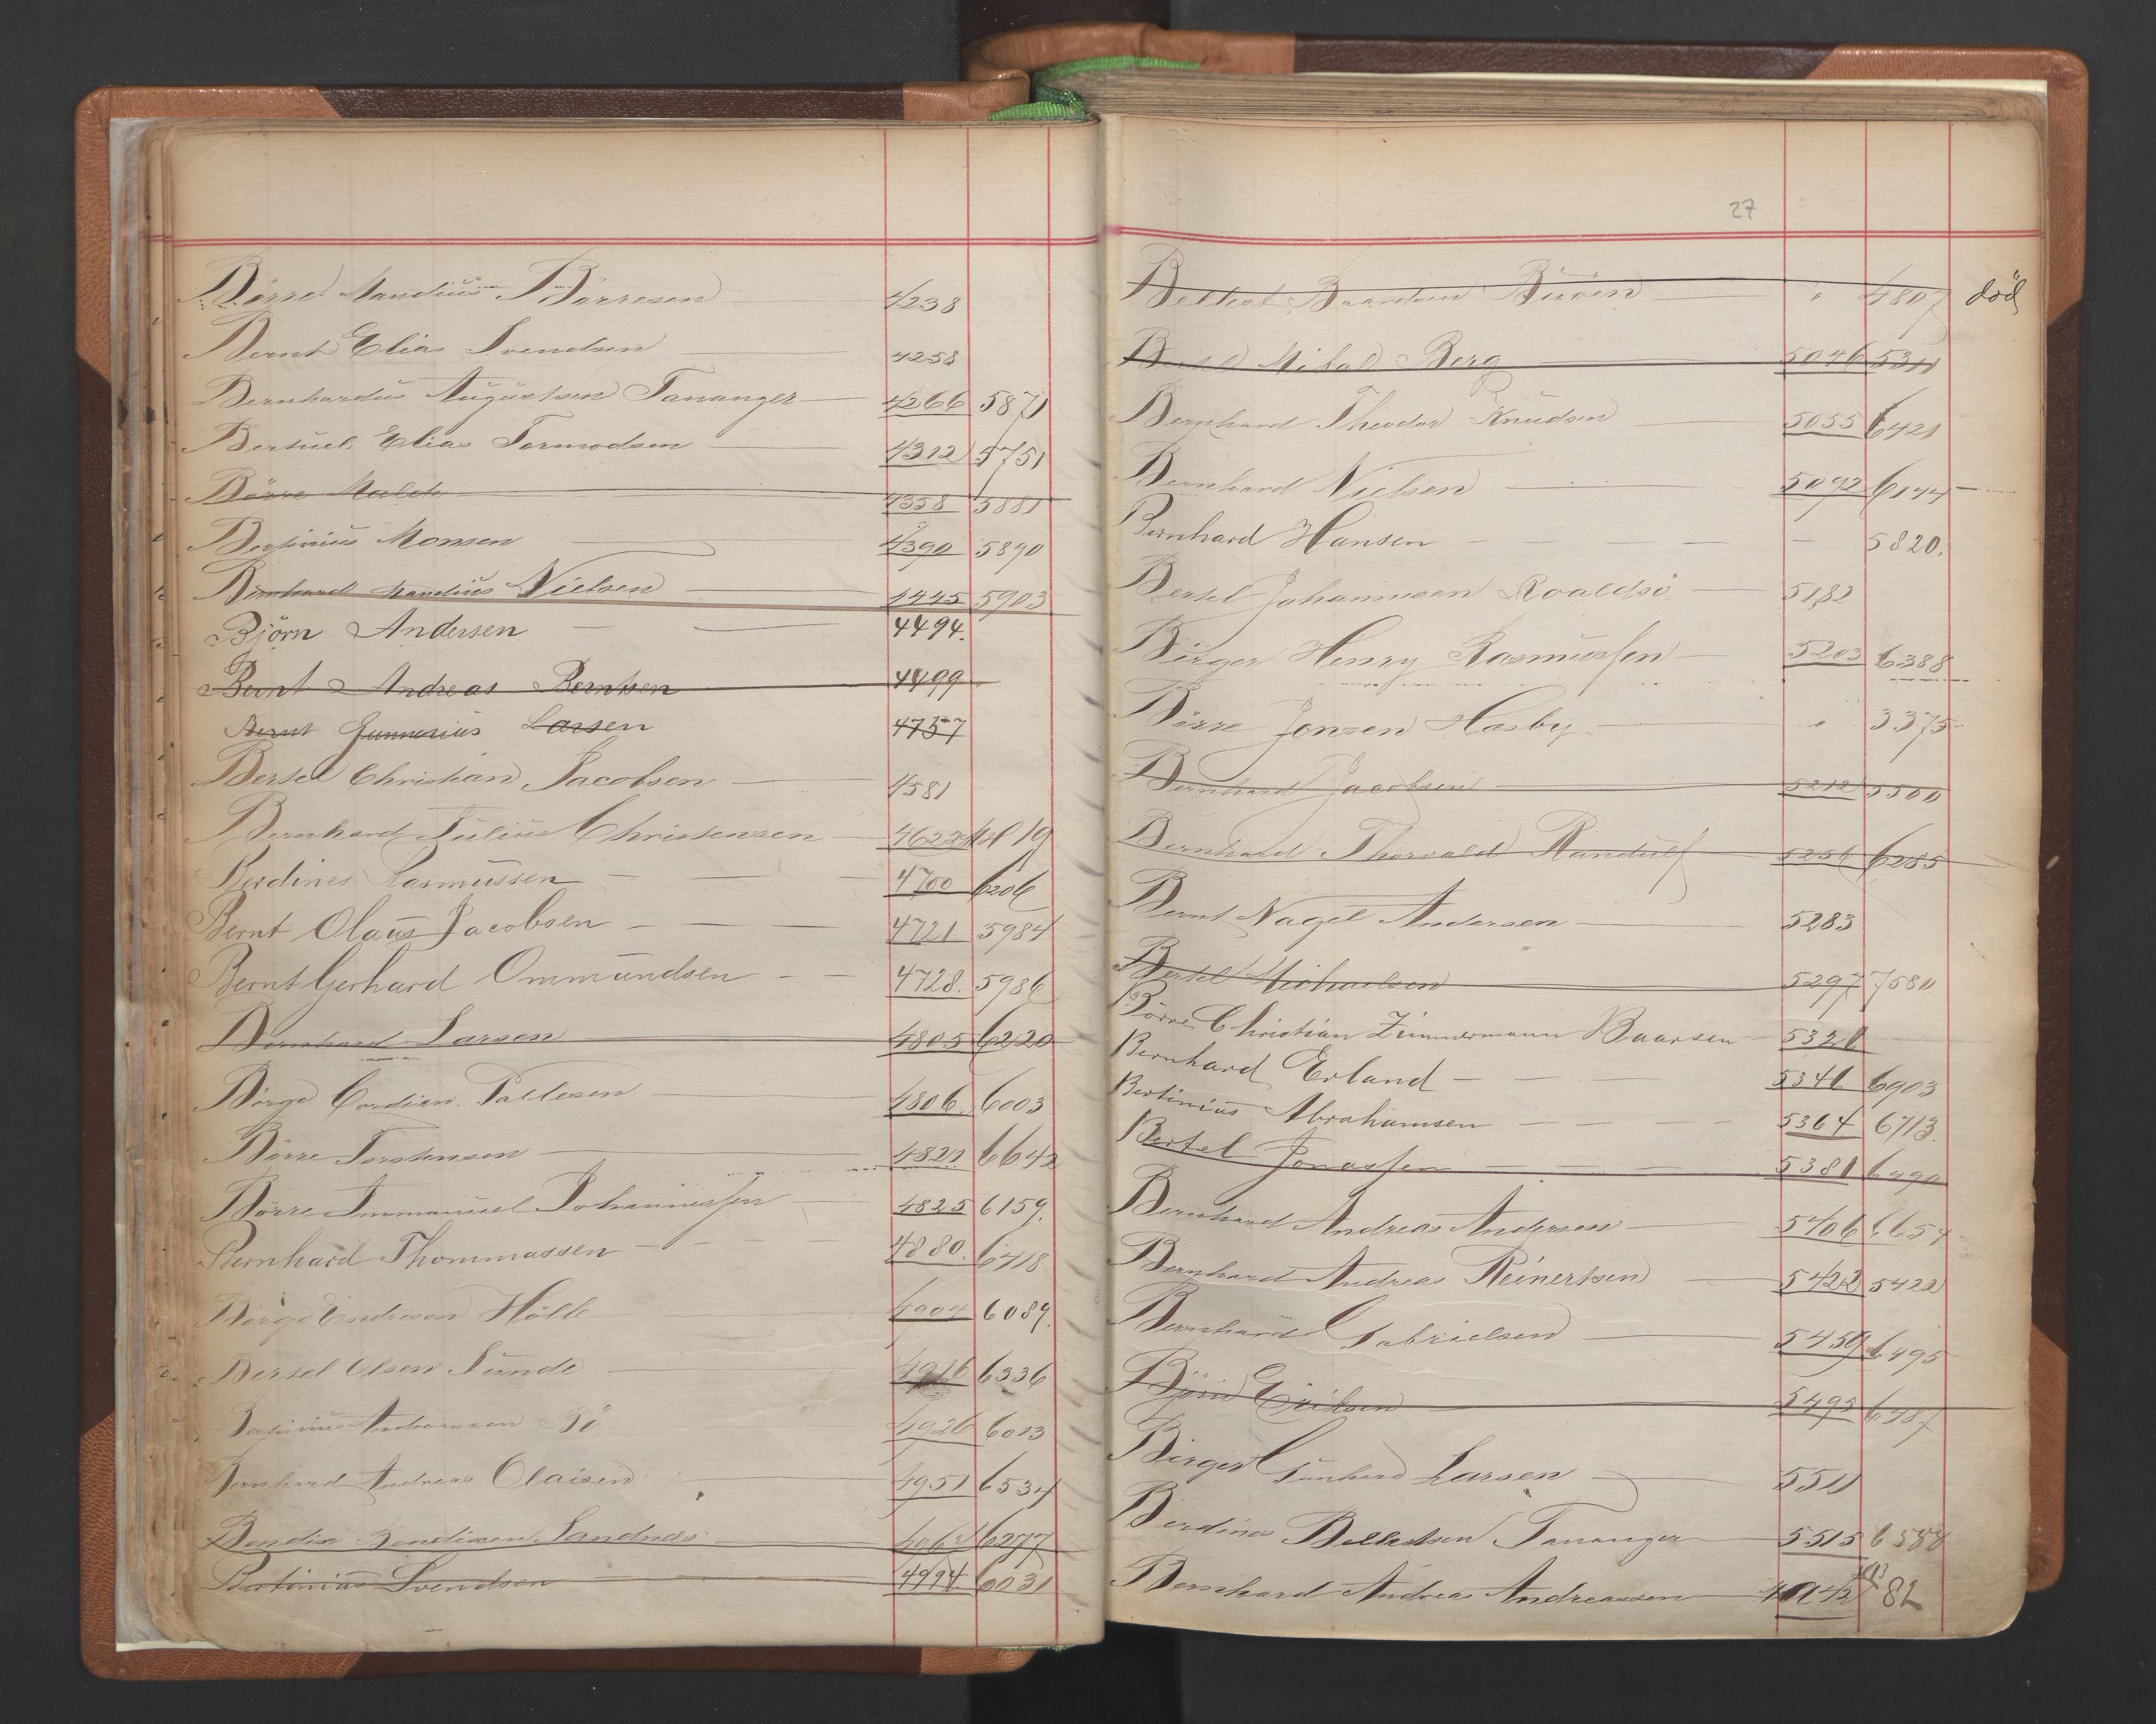 Børre Mandius Börresen — 4238
Bernt Elias Svendsen — 4258
Bernhardus Augustsen Tananger — 4266 5871
Bertuel Elias Tormodsen — 4312 5751
Börre Malde — 4358 5881
Bertinius Monsen — 4390 5890
Bernhard Mandius Nielsen — 4445 5903
Björn Andersen — 4494.
Bernt Andreas Berntsen 4499
Bernt Gunnerius Larsen 4737
Bertel Christian Jacobsen — 4581
Bernhard Julius Christensen — 4622
Berdines Rasmussen — 4700 6206
Bernt Olaus Jacobsen — 4721 5984
Bernt Gerhard Ommundsen — 4728. 5986
Bernhard Larsen 4805 6220
Börge Cordian Pallesen — 4806. 6003
Börre Torstensen — 4821 6642
Börre Immanuel Johannessen — 4825 6159.
Bernhard Thommassen — 4880. 6418
Börge Endresen Hölle 4904 6089.
Bertel Olsen Sunde — 4916 6336
Bertinius Andreassen Bö 4926 6013
Bernhard Andreas Olaisen — 4951 6534
Bendix Bendixen Sandnæs — 6277
Bertinius Svendsen 4994. 6031
27
Baardsen " 4807 död
Berg — 5046 5311
Bernhard Theodor Knudsen — 5055 6421
Bernhard Nielsen — 5092 6144
Bernhard Hansen — 5820.
Bertel Johannesen Roaldsö — 5182
Birger Henry Rasmussen — 5203 6388
Börre Jonsen Hæsby — " 3375
Bernhard Jacobsen — 5212 5500
Bernhard Thorvald Randulf — 5256 6285
Bernt Nagel Andersen — 5283
Bertel Michaelsen 5297 7580
Börre Christian Zimmermann Baarsen — 5320
Bernhard Erland — 5346 6903
Bertinius Abrahamsen — 5364 6713.
Bertel Jonassen — 5381 6490
Bernhard Andreas Andersen — 5406 6654
Bernhard Andreas Reinertsen — 5422 5422
Bernhard Gabrielsen — 5459 6495
Björn Eriksen — 5493 6487
Birger Larsen — 5511
Berdines Bellestsen Tananger — 5515 6588
Bernhard Andreas Andreassen — 82